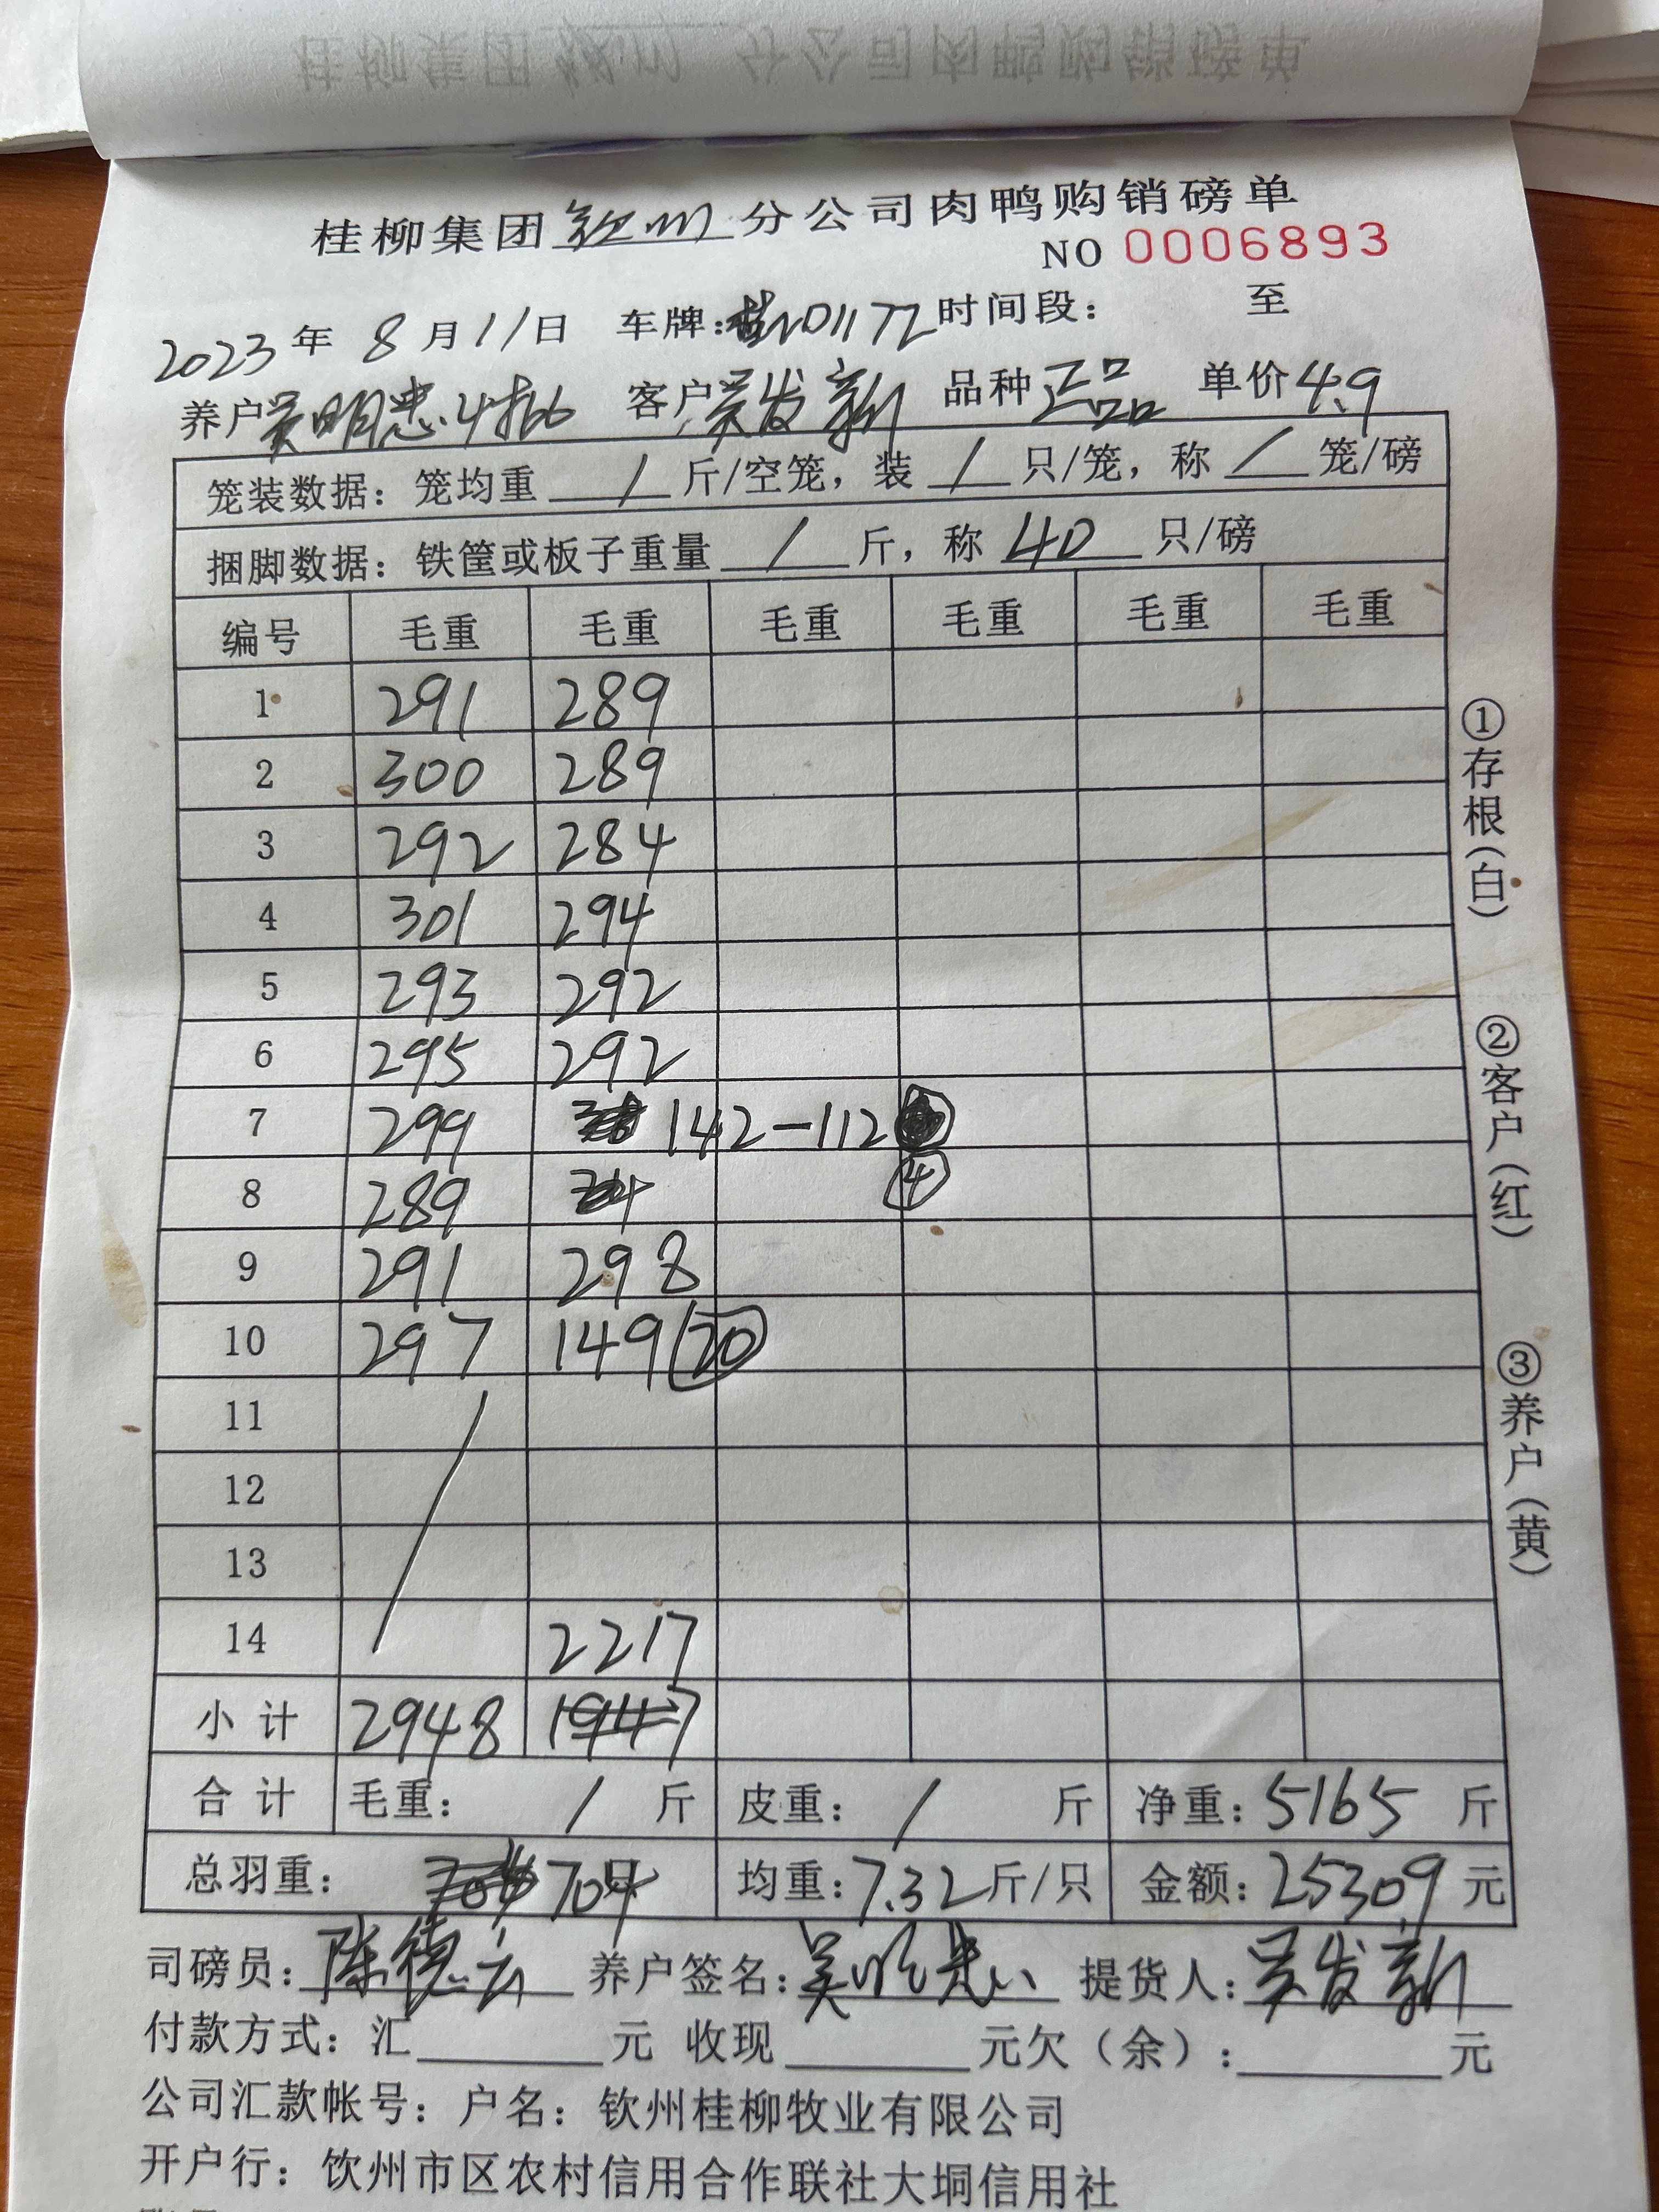 桂柳集团钦州分公司肉鸭购销磅单
NO 0006893
2023年 8月11日 车牌:桂N01172 时间段: 至
养户 吴明忠.4批 客户 吴发新 品种 正品 单价 4.9
笼装数据:笼均重 / 斤/空笼,装 / 只/笼,称 / 笼/磅
捆脚数据:铁筐或板子重量 / 斤,称 40 只/磅
编号 毛重 毛重 毛重 毛重 毛重 毛重
1 291 289
2 300 289
3 292 284
4 301 294
5 293 292
6 295 292
7 299 142-112
8 289 ④
9 291 298
10 297 149 ⑳
11
12
13
14 2217
小计 2948 1947
合计 毛重: / 斤 皮重: / 斤 净重:5165 斤
总羽重: 704只 均重:7.32 斤/只 金额:25309 元
司磅员:陈德云 养户签名:吴明忠 提货人:吴发新
付款方式:汇 元 收现 元欠(余): 元
公司汇款帐号:户名:钦州桂柳牧业有限公司
开户行:钦州市区农村信用合作联社大垌信用社
①存根(白)
②客户(红)
③养户(黄)